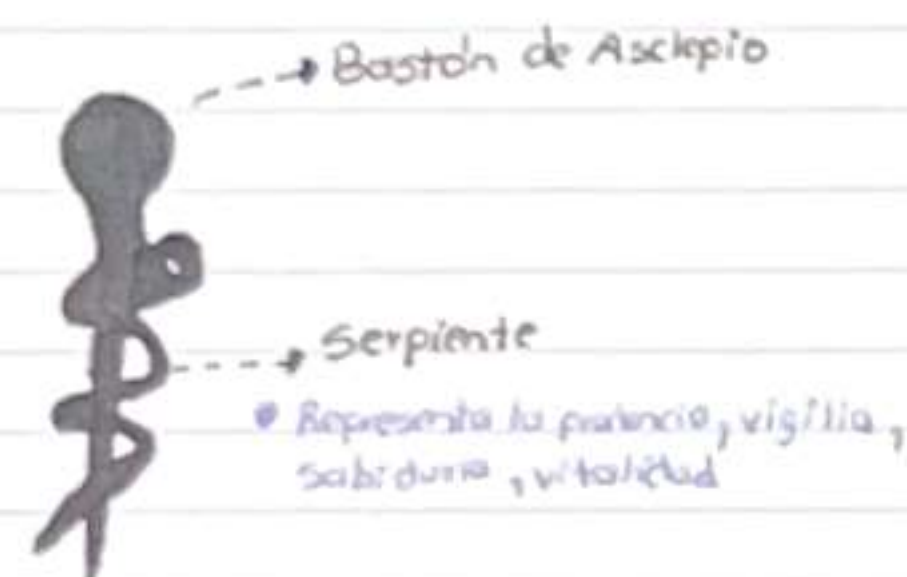 Bastón de Asclepio
Serpiente
Representa la prudencia, vigilia,
sabiduria, vitalidad